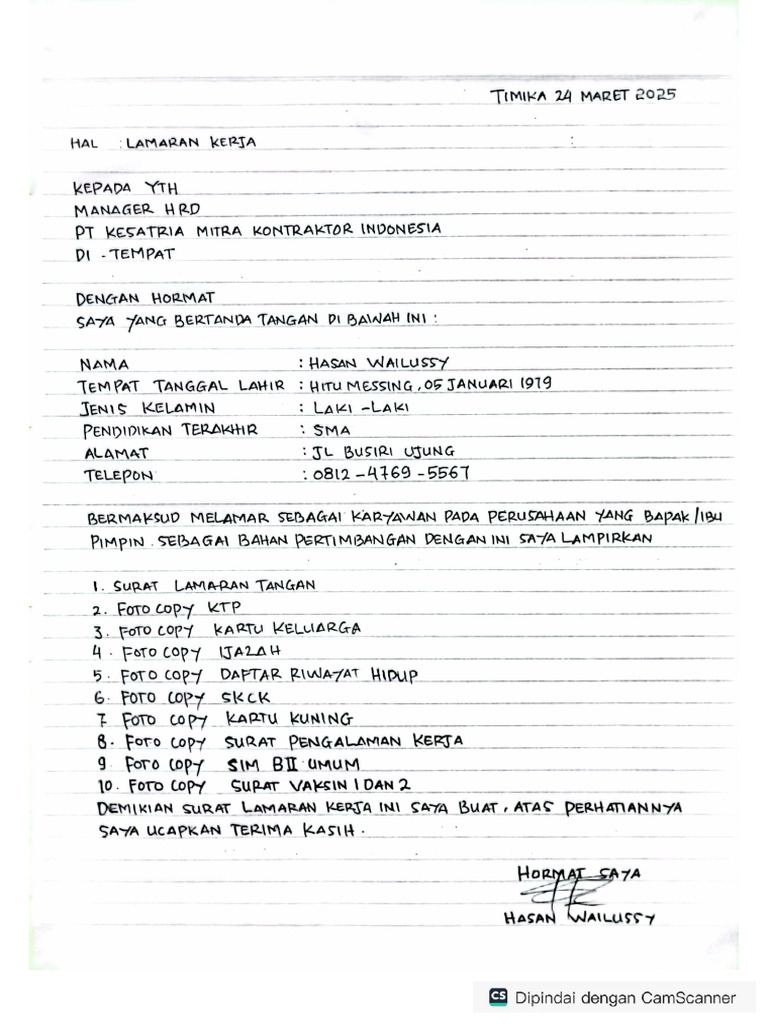 TIMIKA 24 MARET 2025
HAL : LAMARAN KERJA :
KEPADA YTH
MANAGER HRD
PT KESATRIA MITRA KONTRAKTOR INDONESIA
DI - TEMPAT
DENGAN HORMAT
SAYA YANG BERTANDA TANGAN DI BAWAH INI :
NAMA : HASAN WAILUSSY
TEMPAT TANGGAL LAHIR : HITU MESSING, 05 JANUARI 1979
JENIS KELAMIN : LAKI - LAKI
PENDIDIKAN TERAKHIR : SMA
ALAMAT : JL BUSIRI UJUNG
TELEPON : 0812 - 4769 - 5567
BERMAKSUD MELAMAR SEBAGAI KARYAWAN PADA PERUSAHAAN YANG BAPAK/IBU
PIMPIN. SEBAGAI BAHAN PERTIMBANGAN DENGAN INI SAYA LAMPIRKAN
1. SURAT LAMARAN TANGAN
2. FOTO COPY KTP
3. FOTO COPY KARTU KELUARGA
4. FOTO COPY IJAZAH
5. FOTO COPY DAFTAR RIWAYAT HIDUP
6. FOTO COPY SKCK
7. FOTO COPY KARTU KUNING
8. FOTO COPY SURAT PENGALAMAN KERJA
9. FOTO COPY SIM BII UMUM
10. FOTO COPY SURAT VAKSIN 1 DAN 2
DEMIKIAN SURAT LAMARAN KERJA INI SAYA BUAT, ATAS PERHATIANNYA
SAYA UCAPKAN TERIMA KASIH.
HORMAT SAYA
HASAN WAILUSSY
CS Dipindai dengan CamScanner